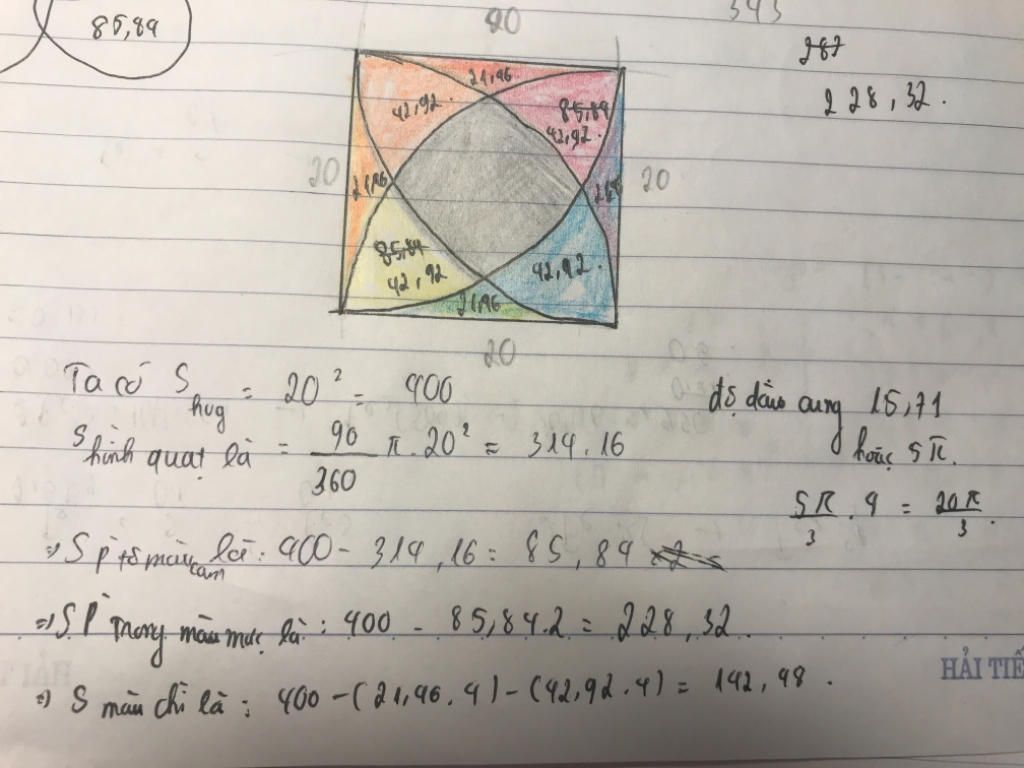 85,84
343
287
228,32.
20
21,46
42,92.
85,84
42,92.
20
21,46
20
85,84
42,92
42,92.
21,46
20
Ta có S hvg = 20² = 400
độ dài cung 15,71
hoặc 5π.
S hình quạt là = 90/360 π.20² = 314.16
5π/3 . 4 = 20π/3.
=> S P tô màu cam là: 400 - 314,16 = 85,84
=> S P trong màu mực là: 400 - 85,84.2 = 228,32.
HẢI TIẾ
=> S màu chì là: 400 - (21,46.4) - (42,92.4) = 142,48.